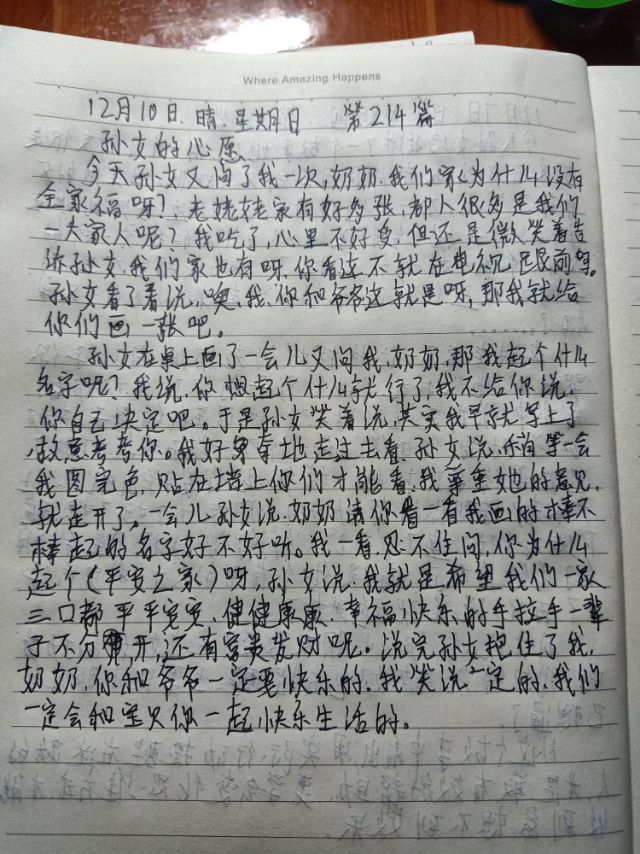 Where Amazing Happens
12月10日 晴 星期日 第214篇
孙女的心愿
今天孙女又问了我一次,奶奶.我们家为什么没有
全家福呀?老姥姥家有好多张,都人很多是我们
一大家人呢?我吃了,心里不好受.但还是微笑着告
诉孙女.我们家也有呀.你看这不就在电视 前吗.
孙女看了看说,噢,我.你和爷爷这就是呀,那我就给
你们画一张吧。
孙女在桌上画了一会儿又问我,奶奶.那我起个什么
名字呢?我说.你想起个什么就行了,我不给你说.
你自己决定吧。于是孙女笑着说,其实我早就写上了
故意考考你。我好穿奇地走过去看.孙女说.稍等一会
我图完色.贴在墙上你们才能看.我尊重她的意见.
就走开了。一会儿孙女说.奶奶请你看一看我画的棒不
棒起的名字好不好听。我一看.忍不住问,你为什么
起个(平安之家)呀,孙女说.我就是希望我们一家
三口都平平安安.健健康康.幸福快乐的手拉手一辈
子不分开,还有富贵发财呢。说完孙女抱住了我.
奶奶.你和爷爷一定要快乐的.我笑说一定的.我们
一定会和宝贝你一起快乐生活的。